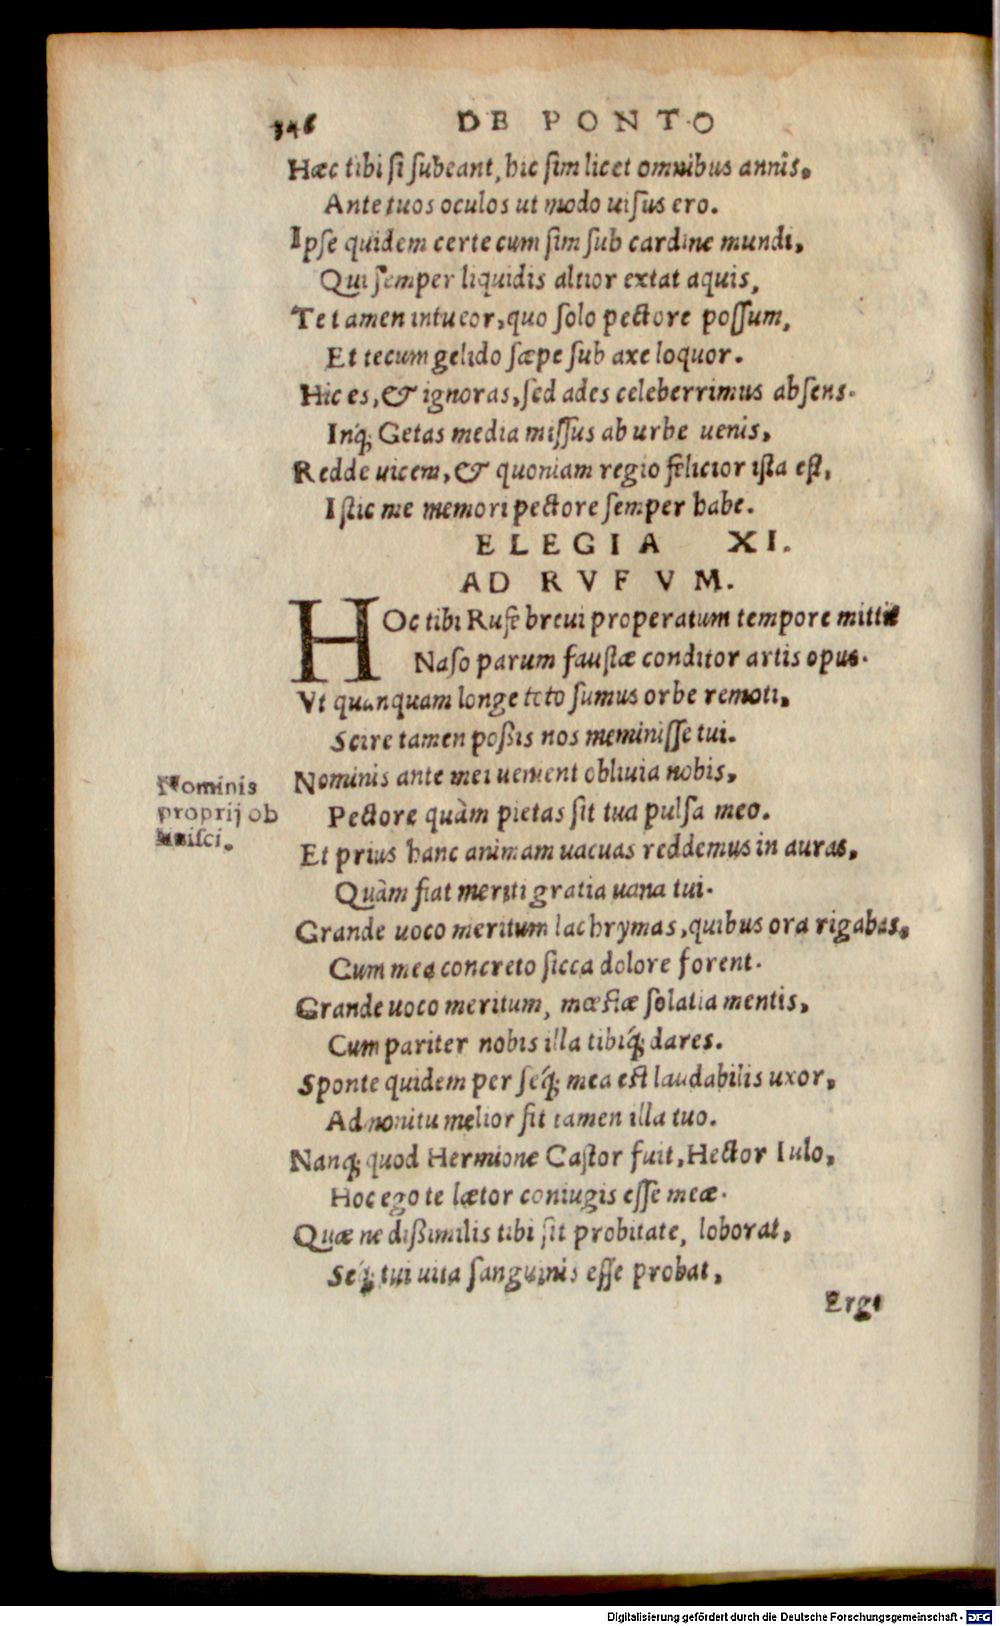 346 DE PONTO
Hæc tibi si subeant, hic sim licet omnibus annis,
Ante tuos oculos ut modo uisus ero.
Ipse quidem certe cum sim sub cardine mundi,
Qui semper liquidis altior extat aquis,
Te tamen intueor, quo solo pectore possum,
Et tecum gelido sæpe sub axe loquor.
Hic es, & ignoras, sed ades celeberrimus absens.
Inq́; Getas media missus ab urbe uenis,
Redde uicem, & quoniam regio felicior ista est,
Istic me memori pectore semper habe.
ELEGIA XI.
AD RVFVM.
HOc tibi Rufe breui properatum tempore mittit
Naso parum faustæ conditor artis opus.
Vt quanquam longe toto sumus orbe remoti,
Scire tamen poßis nos meminisse tui.
Nominis ante mei uenient obliuia nobis,
Pectore quàm pietas sit tua pulsa meo.
Nominis
proprij ob
liuisci.
Et prius hanc animam uacuas reddemus in auras,
Quàm fiat meriti gratia uana tui.
Grande uoco meritum lachrymas, quibus ora rigabas,
Cum mea concreto sicca dolore forent.
Grande uoco meritum, mœstæ solatia mentis,
Cum pariter nobis illa tibiq́; dares.
Sponte quidem per seq́; mea est laudabilis uxor,
Admonitu melior fit tamen illa tuo.
Nanq; quod Hermione Castor fuit, Hector Iulo,
Hoc ego te lætor coniugis esse meæ.
Quæ ne dißimilis tibi sit probitate, loborat,
Seq́; tui uita sanguinis esse probat,
Ergo
Digitalisierung gefördert durch die Deutsche Forschungsgemeinschaft - DFG